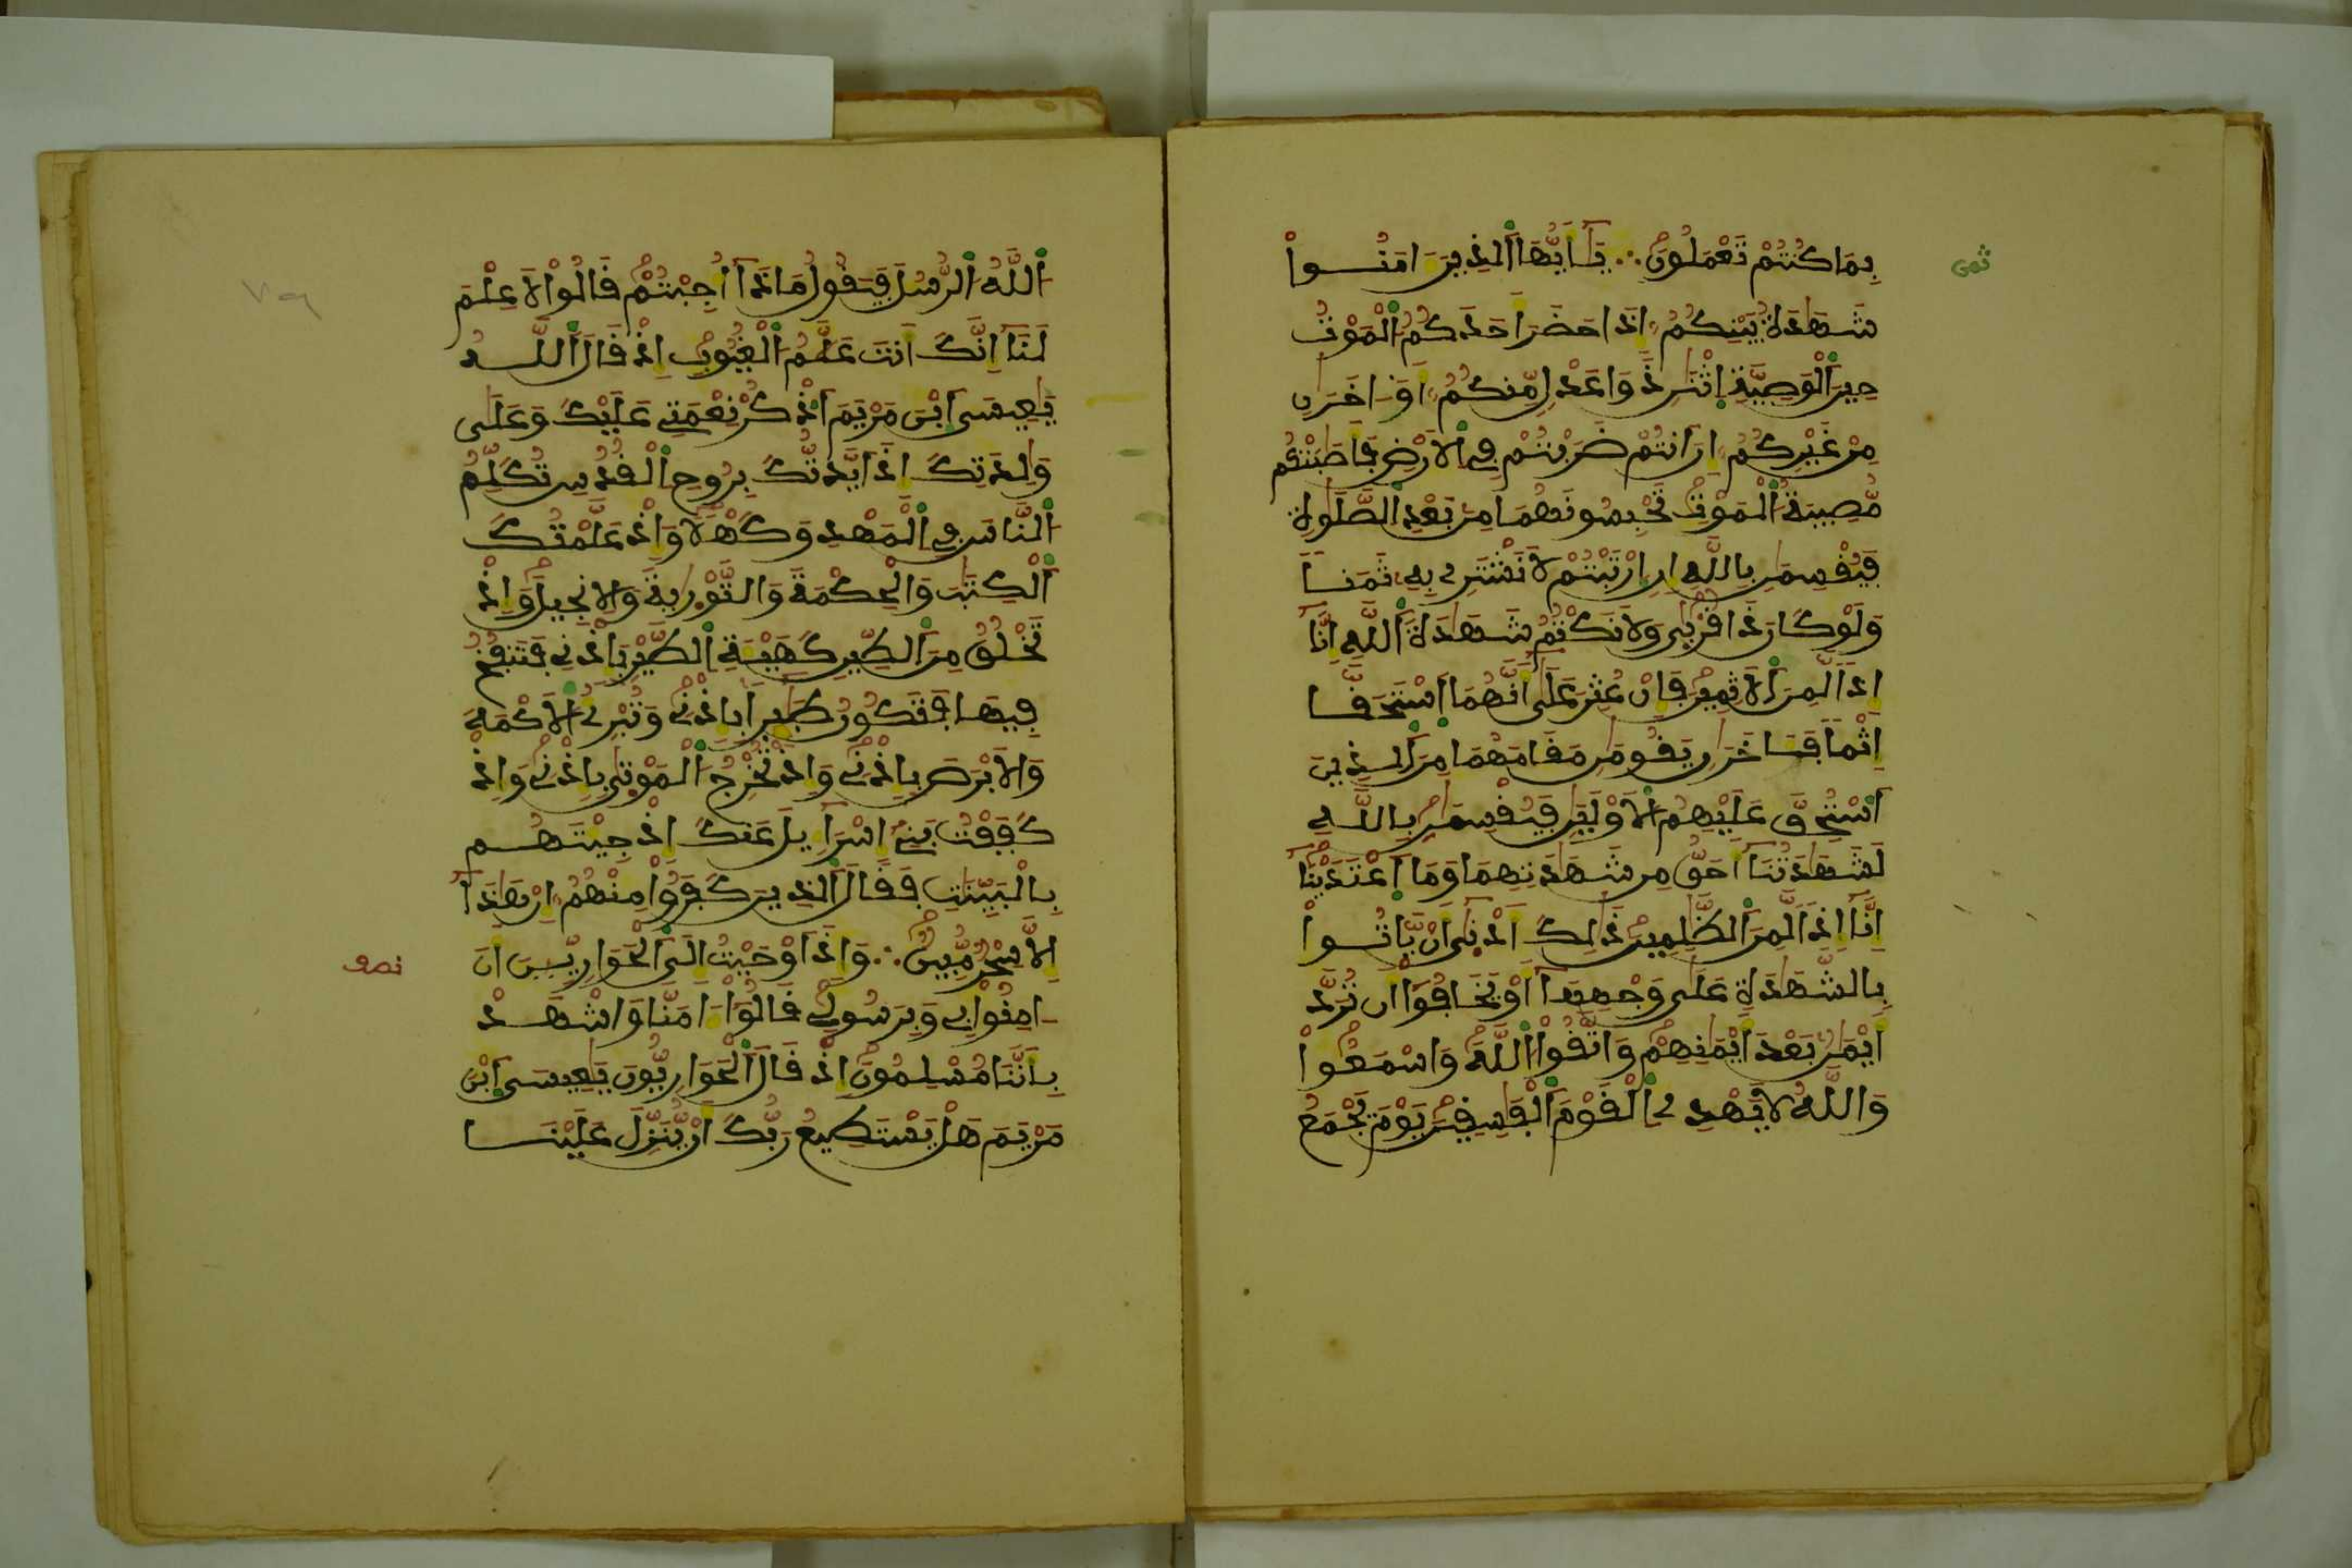 ثمن
بِمَا كُنتُمْ تَعْمَلُونَ ∴ يَـٰٓأَيُّهَا ٱلذِينَ ءَامَنُوا
شَهَٰدَةُ بَيْنِكُمُ إِذَا حَضَرَ أَحَدَكُمُ ٱلْمَوْتُ
حِينَ ٱلْوَصِيَّةِ ٱثْنَٰنِ ذَوَا عَدْلٍ مِّنكُمُ أَوَ اخَرَٰنِ
مِنْ غَيْرِكُمُ إِنَ انتُمْ ضَرَبْتُمْ فِے ٱلَارْضِ فَأَصَٰبَتْكُم
مُّصِيبَةُ ٱلْمَوْتِ تَحْبِسُونَهُمَا مِنۢ بَعْدِ ٱلصَّلَوٰةِ
فَيُقْسِمَٰنِ بِاللَّهِ إِنِ ٱرْتَبْتُمْ لَا نَشْتَرِے بِهِ ثَمَناً
وَلَوْ كَانَ ذَا قُرْبَىٰ وَلَا نَكْتُمُ شَهَٰدَةَ ٱللَّهِ إِنَّآ
إِذاً لَّمِنَ ٱلَاثِمِينَ فَإِنْ عُثِرَ عَلَىٰٓ أَنَّهُمَا ٱسْتَحَقَّا
إِثْماً فَـَٔاخَرَٰنِ يَقُومَٰنِ مَقَامَهُمَا مِنَ ٱلذِينَ
ٱسْتُحِقَّ عَلَيْهِمُ ٱلَاوْلَيَٰنِ فَيُقْسِمَٰنِ بِاللَّهِ
لَشَهَٰدَتُنَآ أَحَقُّ مِن شَهَٰدَتِهِمَا وَمَا ٱعْتَدَيْنَآ
إِنَّآ إِذاً لَّمِنَ ٱلظَّٰلِمِينَ ذَٰلِكَ أَدْنَىٰٓ أَنْ يَّاتُوا
بِالشَّهَٰدَةِ عَلَىٰ وَجْهِهَآ أَوْ يَخَافُوٓا أَن تُرَدَّ
أَيْمَٰنُۢ بَعْدَ أَيْمَٰنِهِمْ وَاتَّقُوا ٱللَّهَ وَاسْمَعُوا
وَاللَّهُ لَا يَهْدِے ٱلْقَوْمَ ٱلْفَٰسِقِينَ يَوْمَ يَجْمَعُ
٧٩
ٱللَّهُ ٱلرُّسُلَ فَيَقُولُ مَاذَآ أُجِبْتُمْ قَالُوا لَا عِلْمَ
لَنَآ إِنَّكَ أَنتَ عَلَّٰمُ ٱلْغُيُوبِ إِذْ قَالَ ٱللَّهُ
يَٰعِيسَى ٱبْنَ مَرْيَمَ ٱذْكُرْ نِعْمَتِے عَلَيْكَ وَعَلَىٰ
وَٰلِدَتِكَ إِذَ ايَّدتُّكَ بِرُوحِ ٱلْقُدُسِ تُكَلِّمُ
ٱلنَّاسَ فِے ٱلْمَهْدِ وَكَهْلاً وَإِذْ عَلَّمْتُكَ
ٱلْكِتَٰبَ وَالْحِكْمَةَ وَالتَّوْرَيٰةَ وَالِانجِيلَ وَإِذْ
تَخْلُقُ مِنَ ٱلطِّينِ كَهَيْـَٔةِ ٱلطَّيْرِ بِإِذْنِے فَتَنفُخُ
فِيهَا فَتَكُونُ طَٰٓئِراً بِإِذْنِے وَتُبْرِئُ ٱلَاكْمَهَ
وَالَابْرَصَ بِإِذْنِے وَإِذْ تُخْرِجُ ٱلْمَوْتَىٰ بِإِذْنِے وَإِذْ
كَفَفْتُ بَنِےٓ إِسْرَآءِيلَ عَنكَ إِذْ جِئْتَهُم
بِالْبَيِّنَٰتِ فَقَالَ ٱلذِينَ كَفَرُوا مِنْهُمُ إِنْ هَٰذَآ
إِلَّا سِحْرٌ مُّبِينٌ ∴ وَإِذَ اوْحَيْتُ إِلَى ٱلْحَوَارِيِّينَ أَنَ
نصف
ـ امِنُوا بِے وَبِرَسُولِے قَالُوٓا ءَامَنَّا وَاشْهَدْ
بِأَنَّنَا مُسْلِمُونَ إِذْ قَالَ ٱلْحَوَارِيُّونَ يَٰعِيسَى ٱبْنَ
مَرْيَمَ هَلْ يَسْتَطِيعُ رَبُّكَ أَنْ يُّنَزِّلَ عَلَيْنَا